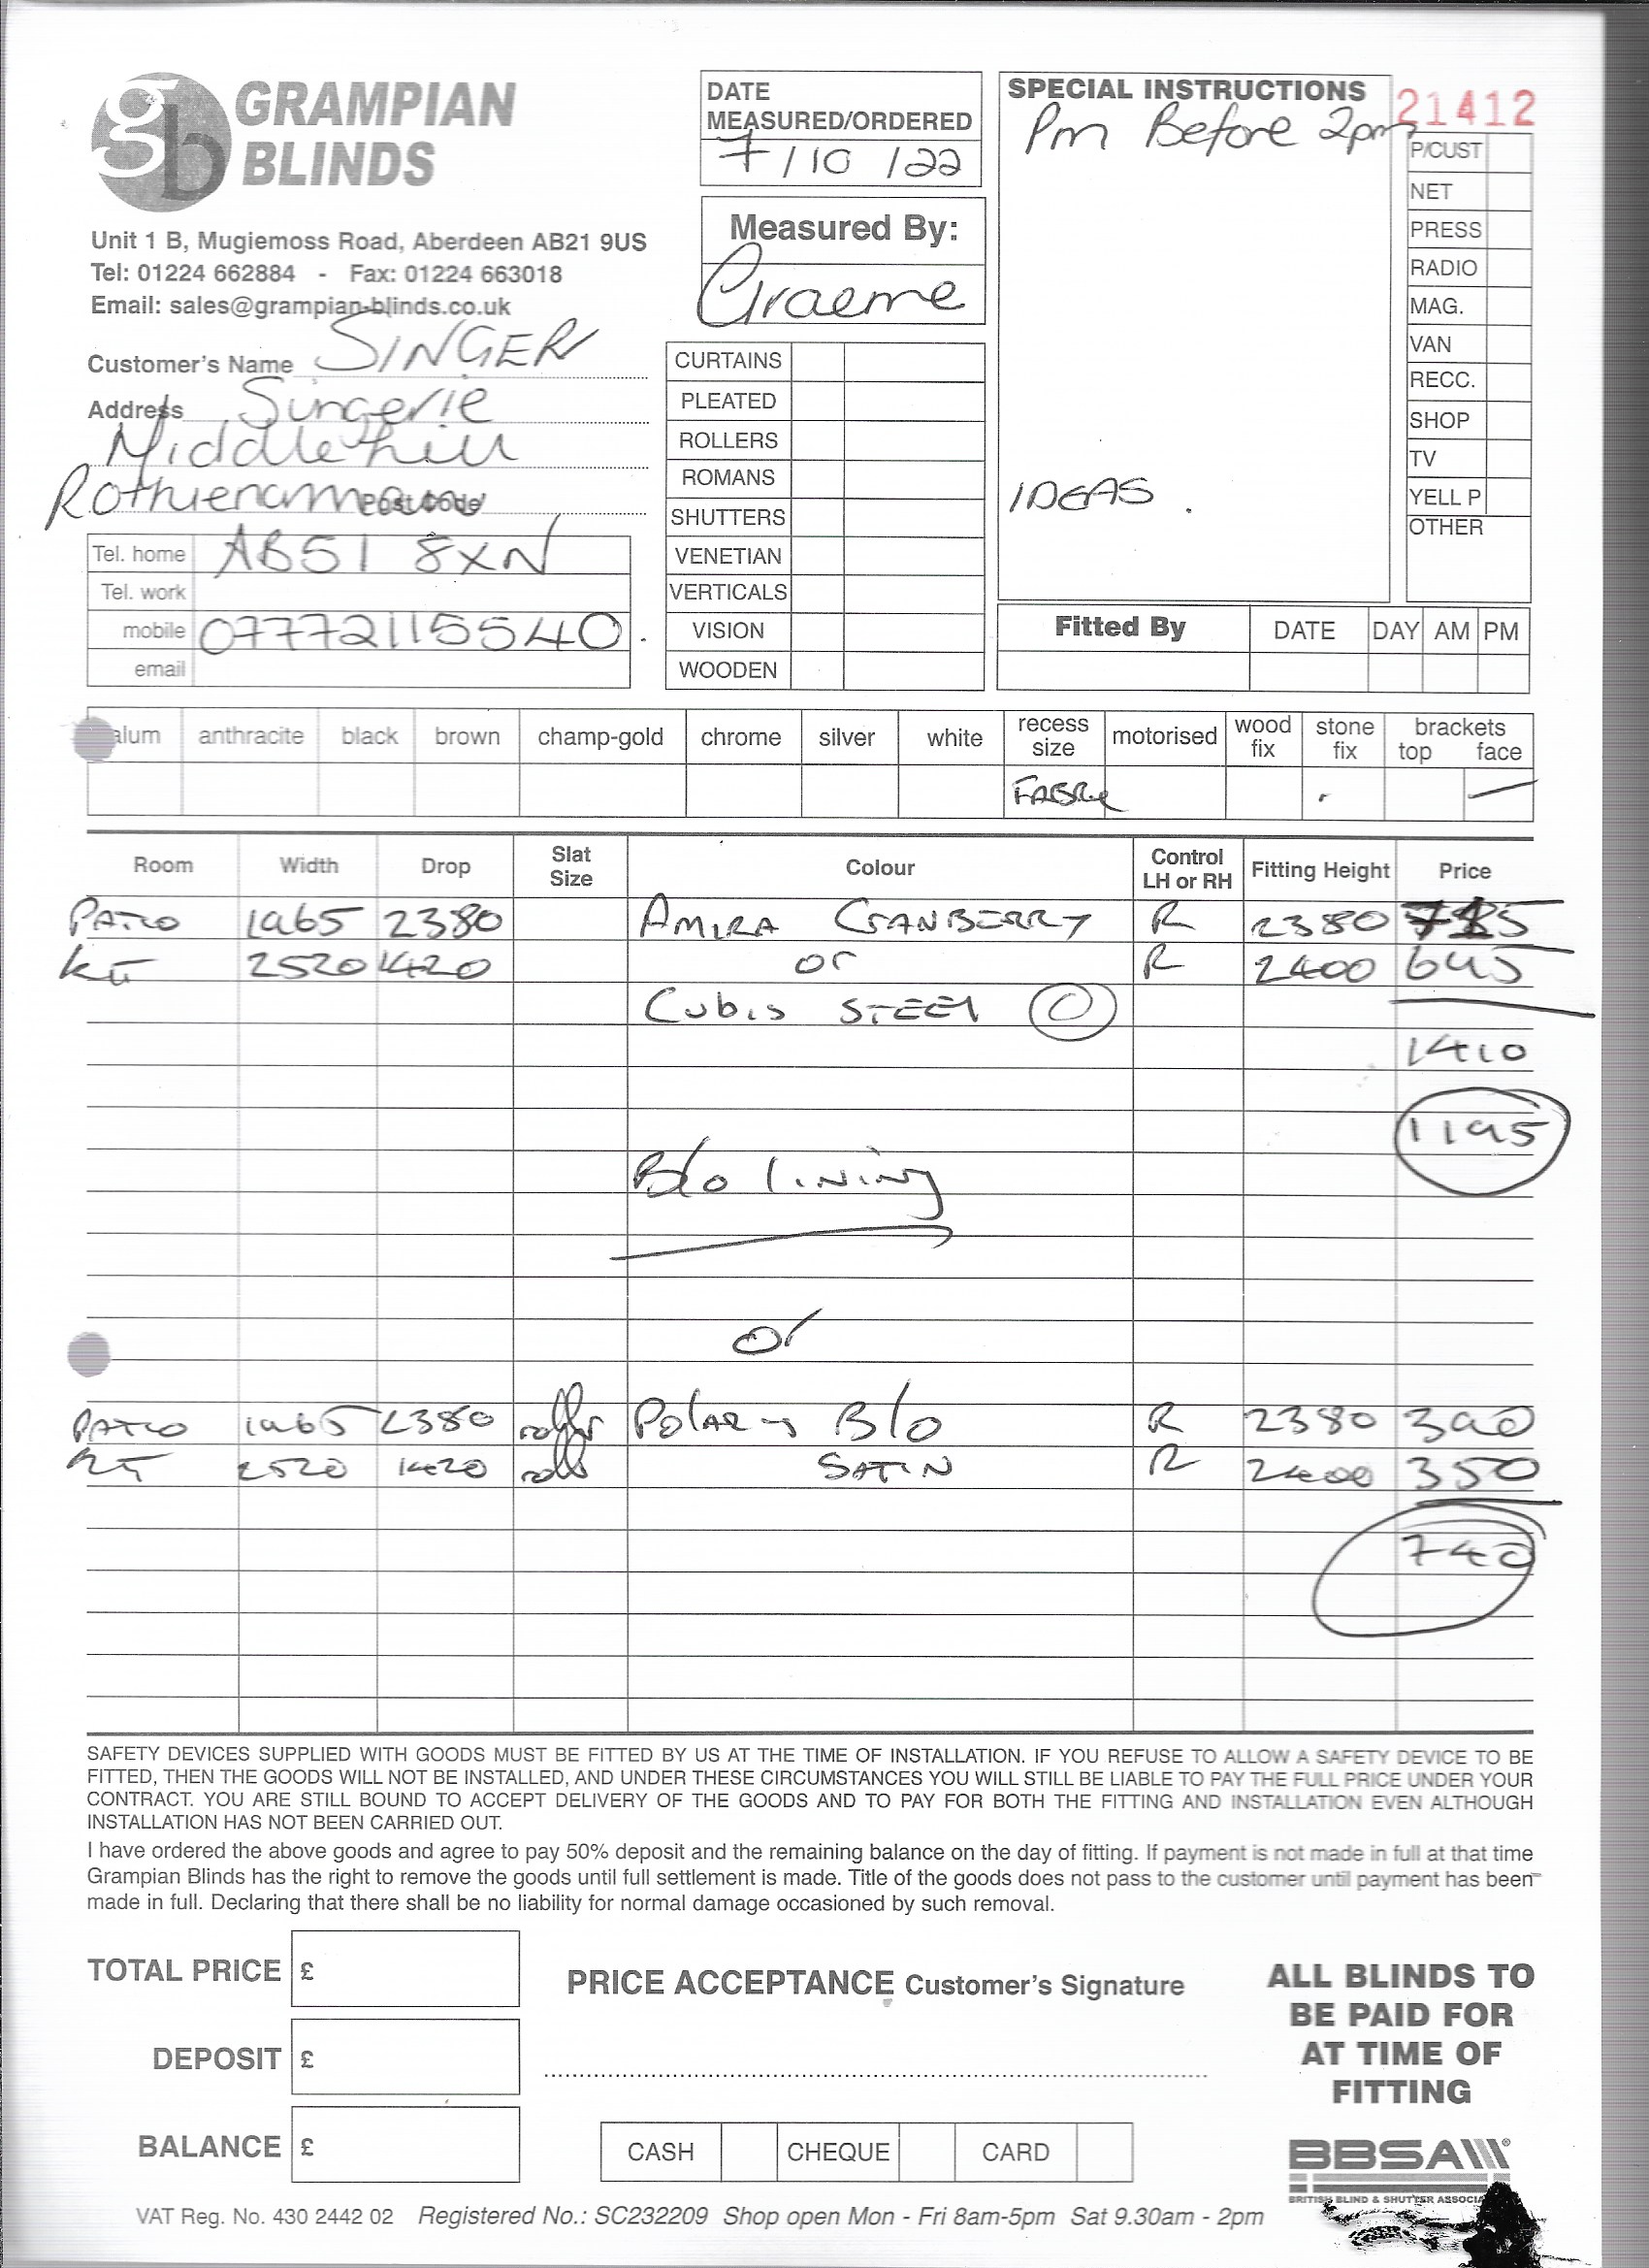 GRAMPIAN
BLINDS
Unit 1 B, Mugiemoss Road, Aberdeen AB21 9US
Tel: 01224 662884 - Fax: 01224 663018
Email: sales@grampian-blinds.co.uk
Customer's Name SINGER
Address Singerie
Middlehill
Post Code
Tel. home AB51 8XN
Tel. work
mobile 07772115540.
email
DATE
MEASURED/ORDERED
7/10/22
Measured By:
Graeme
CURTAINS
PLEATED
ROLLERS
ROMANS
SHUTTERS
VENETIAN
VERTICALS
VISION
WOODEN
SPECIAL INSTRUCTIONS
Pm Before 2pm
IDEAS.
21412
P/CUST
NET
PRESS
RADIO
MAG.
VAN
RECC.
SHOP
TV
YELL P
OTHER
Fitted By DATE DAY AM PM
alum anthracite black brown champ-gold chrome silver white recess size motorised wood fix stone fix brackets top face
Room Width Drop Slat Size Colour Control LH or RH Fitting Height Price
PATIO 1965 2380 AMIRA CRANBERRY R 2380
Kit 2520 1420 or R 2400 645
Cubis STEEL C
1410
1195
B/o lining
or
PATIO 1965 2380 roller POLARIS B/o R 2380 390
Kit 2520 1420 SATIN R 2400 350
740
SAFETY DEVICES SUPPLIED WITH GOODS MUST BE FITTED BY US AT THE TIME OF INSTALLATION. IF YOU REFUSE TO ALLOW A SAFETY DEVICE TO BE
FITTED, THEN THE GOODS WILL NOT BE INSTALLED, AND UNDER THESE CIRCUMSTANCES YOU WILL STILL BE LIABLE TO PAY THE FULL PRICE UNDER YOUR
CONTRACT. YOU ARE STILL BOUND TO ACCEPT DELIVERY OF THE GOODS AND TO PAY FOR BOTH THE FITTING AND INSTALLATION EVEN ALTHOUGH
INSTALLATION HAS NOT BEEN CARRIED OUT.
I have ordered the above goods and agree to pay 50% deposit and the remaining balance on the day of fitting. If payment is not made in full at that time
Grampian Blinds has the right to remove the goods until full settlement is made. Title of the goods does not pass to the customer until payment has been
made in full. Declaring that there shall be no liability for normal damage occasioned by such removal.
TOTAL PRICE £
DEPOSIT £
BALANCE £
PRICE ACCEPTANCE Customer's Signature
CASH CHEQUE CARD
ALL BLINDS TO
BE PAID FOR
AT TIME OF
FITTING
BBSA
BRITISH BLIND & SHUTTER
VAT Reg. No. 430 2442 02 Registered No.: SC232209 Shop open Mon - Fri 8am-5pm Sat 9.30am - 2pm